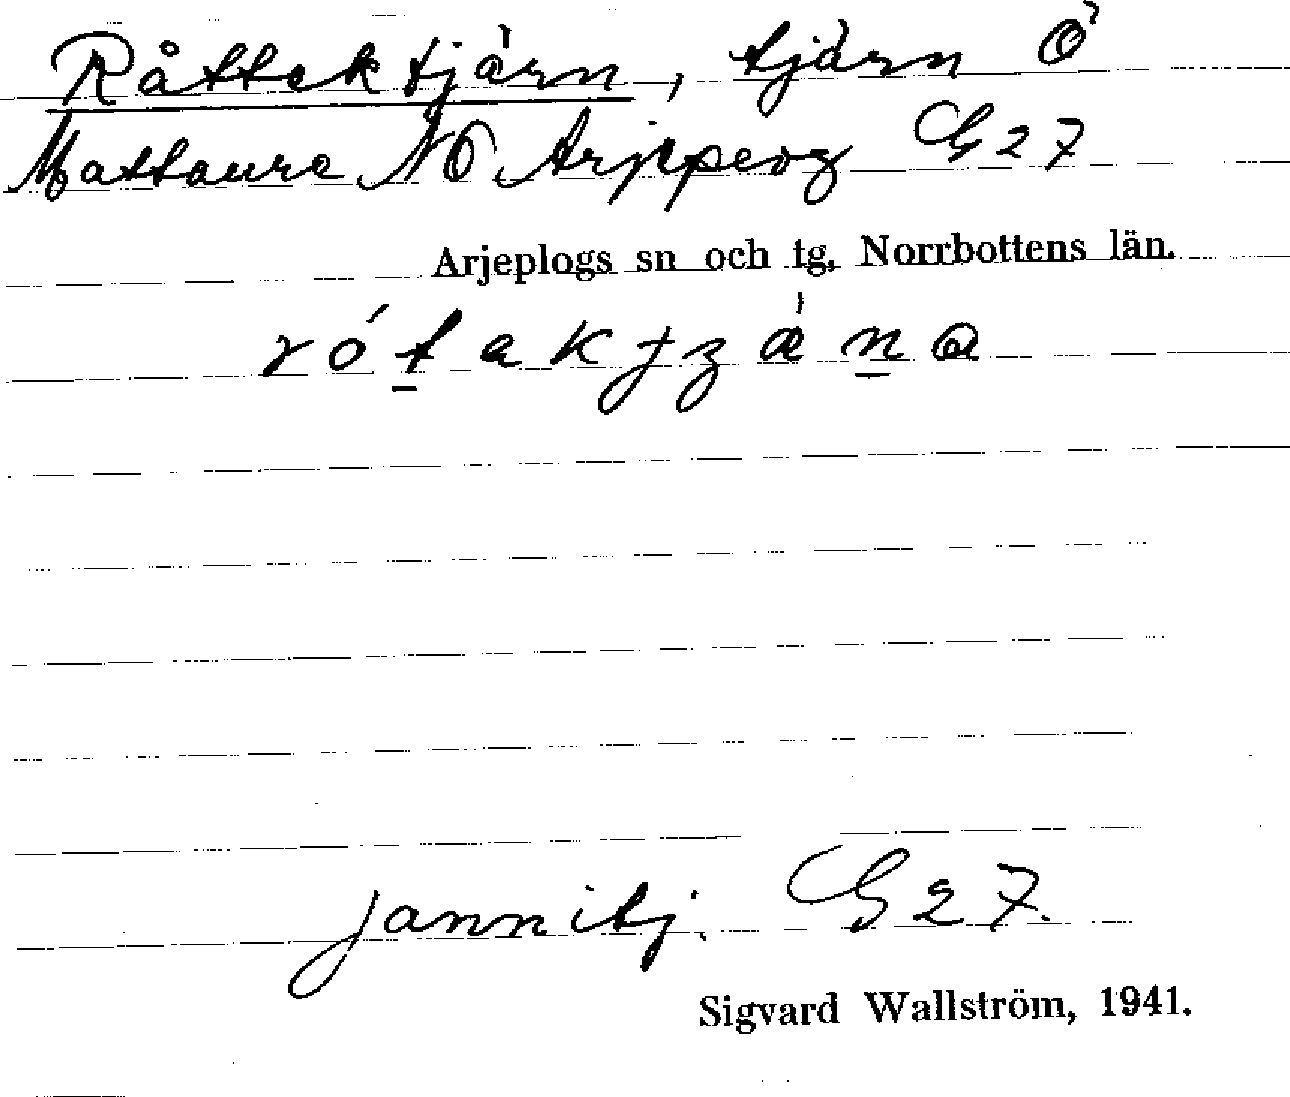 Råttektjärn, tjärn Ö
Mattaure NO Arjepeog G 27
Arjeplogs sn och tg. Norrbottens län.
jannitj. G 27.
Sigvard Wallström, 1941.